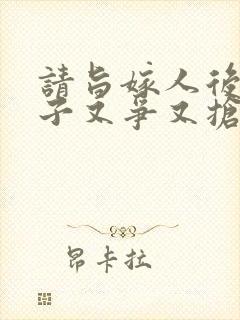 請旨嫁人後
子又爭又搶
昂卡拉